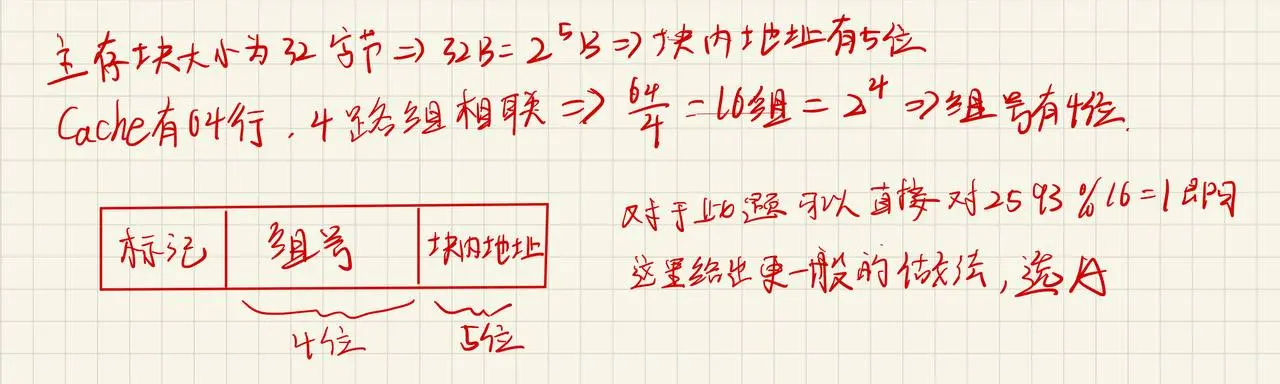 主存块大小为32字节⇒32B=2⁵B⇒块内地址有5位
Cache有64行,4路组相联⇒64/4=16组=2⁴⇒组号有4位.
对于此题可以直接对2593%16=1即可
这里给出更一般的做法,选A
标记 组号 块内地址
4位 5位